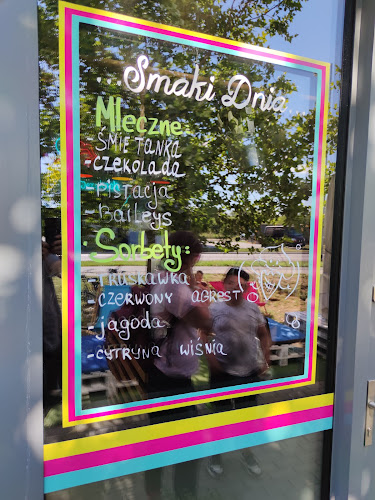 Smaki Dnia
Mleczne:
- ŚMIETANKA
- CZEKOLADA
- PISTACJA
- BAILEYS
Sorbety:
- TRUSKAWKA
- CZERWONY AGREST
- jagoda
- CYTRYNA WIŚNIA